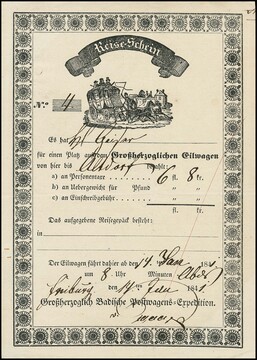 Reise-Schein
No. 4
Es hat
für einen Platz auf dem Großherzoglichen Eilwagen
von hier bis bezahlt:
a) an Personentaxe 6 fl. 8 kr.
b) an Uebergewicht für Pfund " "
c) an Einschreibgebühr " "
fl. kr.
Das aufgegebene Reisegepäck besteht:
in
Der Eilwagen fährt dahier ab den 14. 184
um 8 Uhr Minuten Abds
Freiburg den 14. 184
Großherzoglich Badische Postwagens-Expedition.